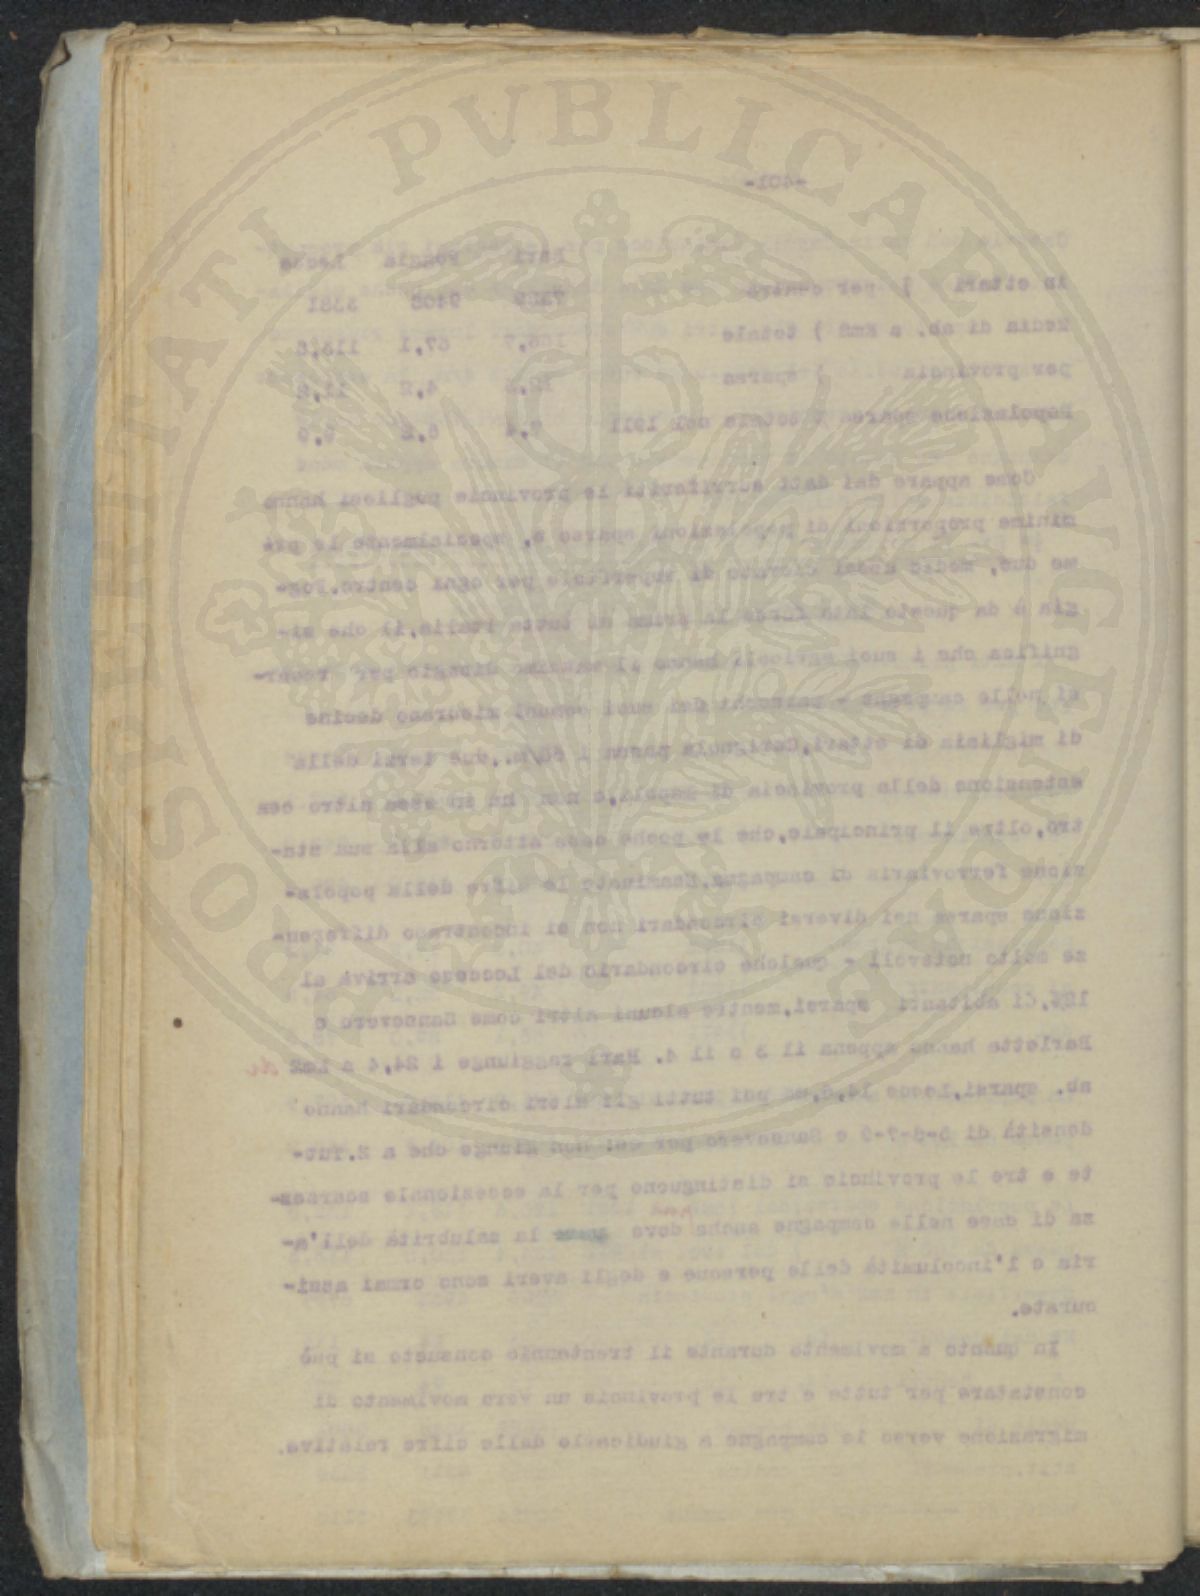 -401-
Bari Foggia Lecce
in ettari ) per centro 7329 9408 3381
Media di ab. a Km2 ) totale 67,1
per provincia ) sparsa 4,2
Popolazione sparsa % totale nel 1911 6,2
Come appare dai dati surriferiti le provincie pugliesi hanno
minime proporzioni di popolazioni sparse e, specialmente le pri-
me due, medie assai elevate di superficie per ogni centro. Fog-
gia è da questo lato forse la prima di tutta Italia, il che si-
gnifica che i suoi agricoli hanno il massimo disagio per recar-
si nelle campagne - parecchi dei suoi comuni misurano decine
di migliaia di ettari, Cerignola passa i 60/m., due terzi della
estensione della provincia di Napoli, e non ha su esse altro cen
tro, oltre il principale, che le poche case attorno alla sua sta-
zione ferroviaria di campagna. Esaminate le cifre della popola-
zione sparsa nei diversi circondari non si incontrano differen-
ze molto notevoli - qualche circondario del Leccese arriva al
12%, di abitanti sparsi, mentre alcuni altri come Sansevero e
Barletta hanno appena il 3 o il 4. Bari raggiunge i 24,4 a Km2
ab. sparsi, Lecce 14,6, ma poi tutti gli altri circondari hanno
densità di 5-6-7-9 e Sansevero per es: non giunge che a 2. Tut-
te e tre le provincie si distinguono per la eccezionale scarsez-
za di case nelle campagne anche dove la salubrità dell'a-
ria e l'incolumità delle persone e degli averi sono ormai assi-
curate.
In quanto a movimento durante il trentennio consueto si può
constatare per tutte e tre le provincie un vero movimento di
migrazione verso le campagne a giudicarlo dalle cifre relative.
PROSPERITATI PVBLICAE AVGENDAE